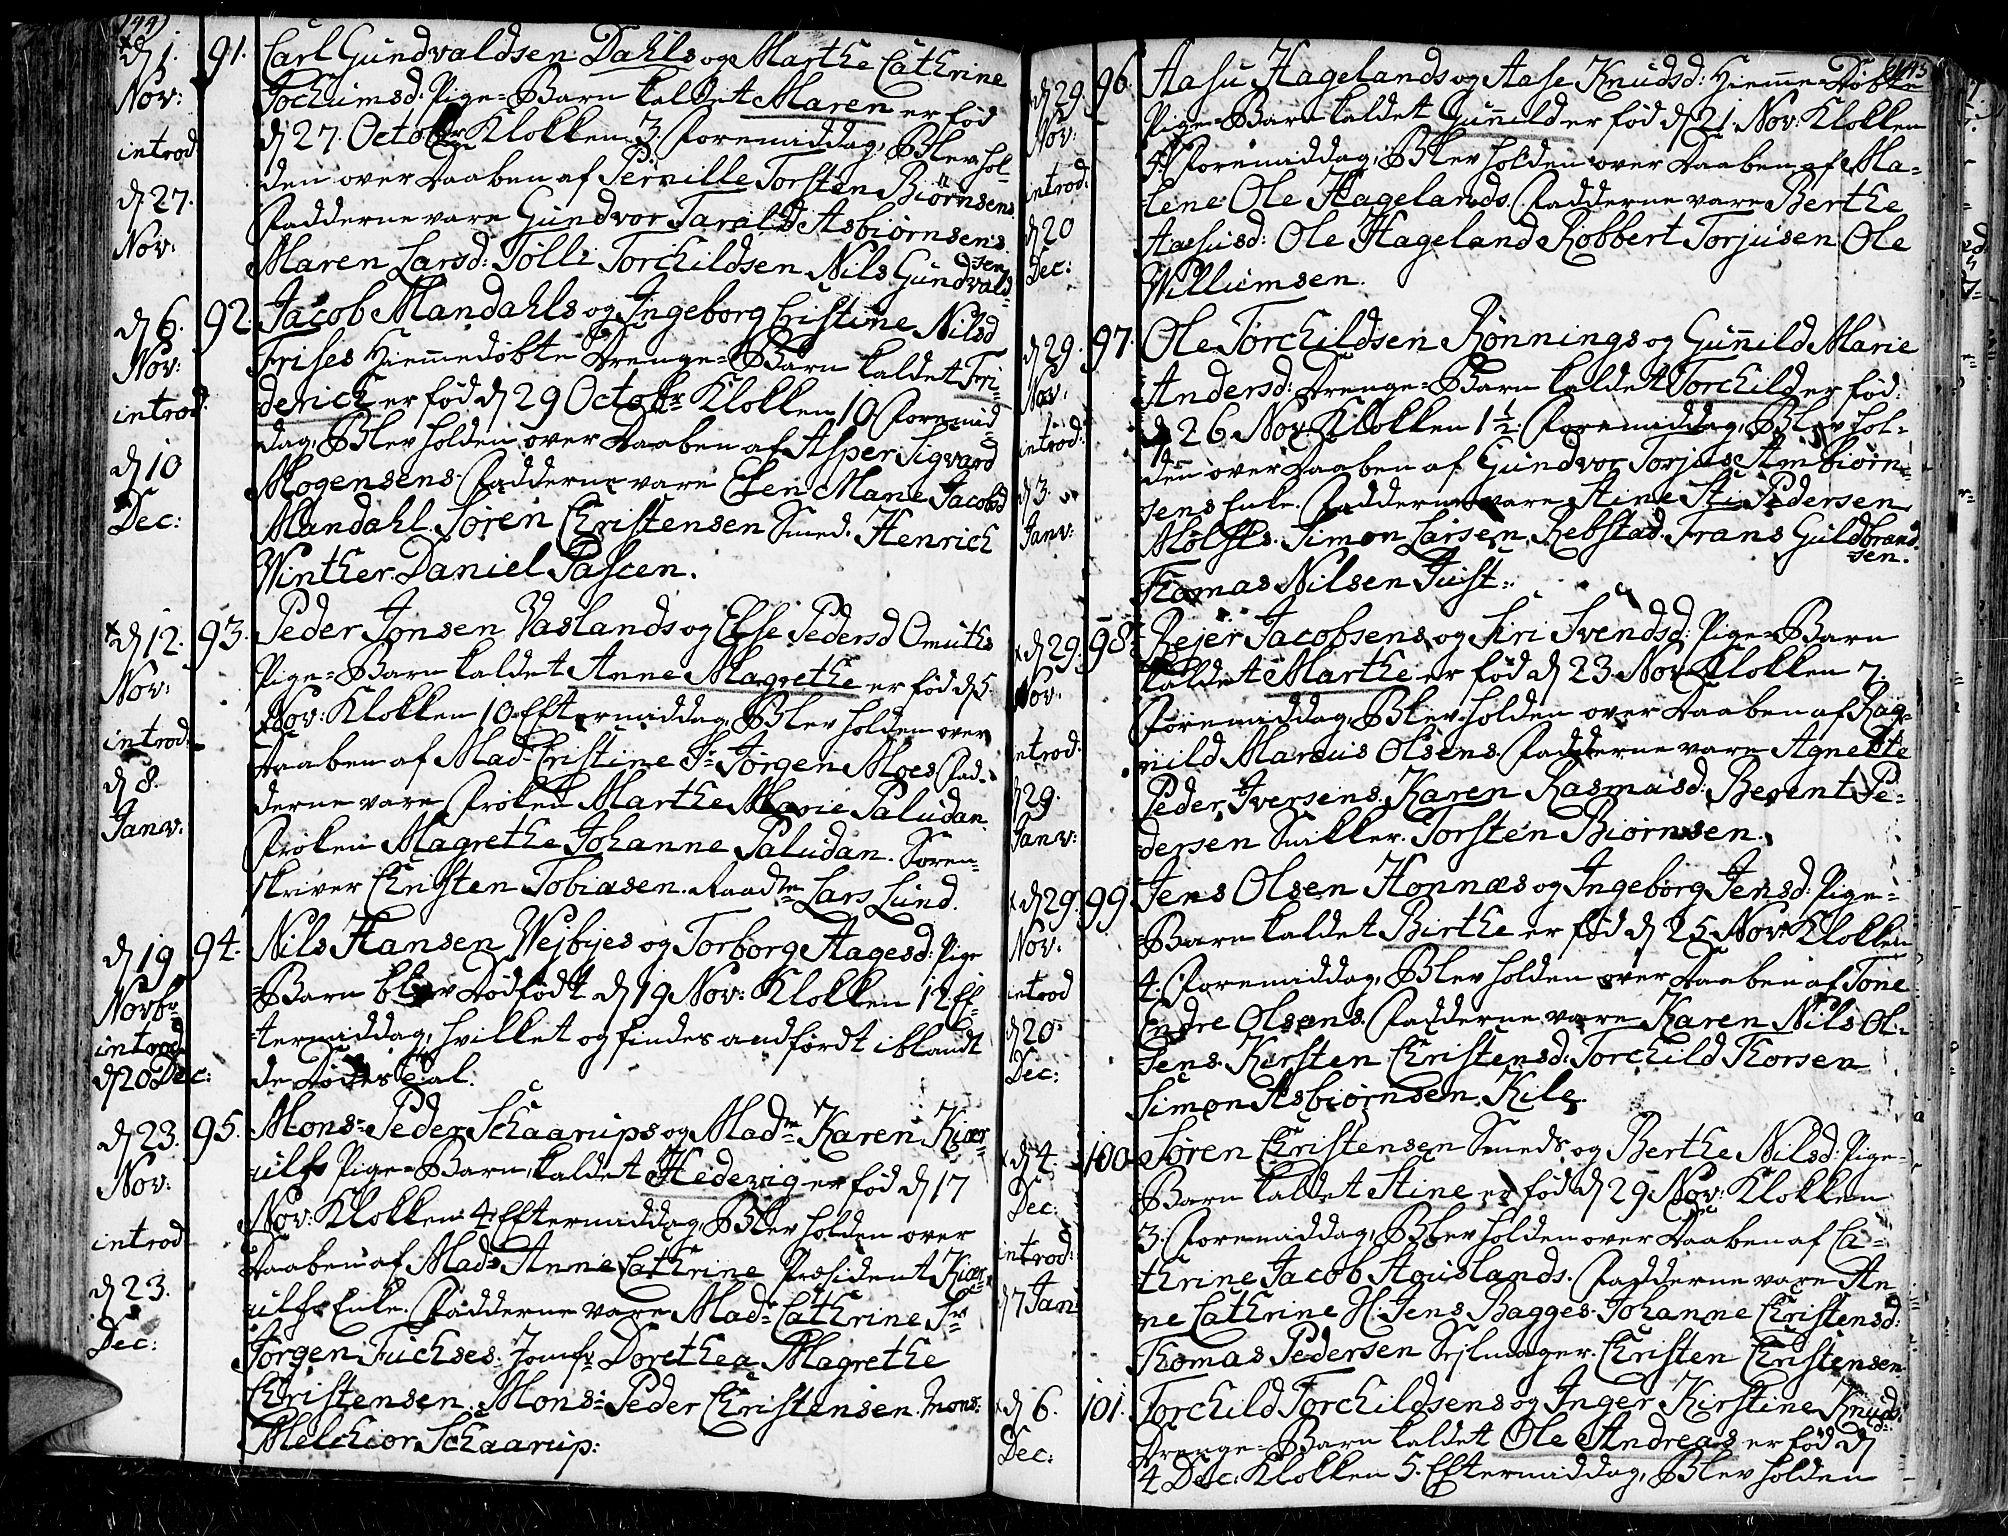 144)
d 1. Nov: introd d 27. Nov:
91. Carl Gundvaldsen Dahls og Marthe Cathrine
Jochumsd: Pige-Barn kaldet Maren er fød
d 27. Octobr Klokken 3. Formiddag, Blev hol-
den over Daaben af Pernille Torsten Biörnsens
Fadderne vare Gundvor Tarald Asbiørnsens
Maren Larsd: Tolli Torchildsen Nils Gundvald-
sen
d 6. Nov: introd: d 10 Dec:
92. Jacob Mandahls og Ingeborg Cristine Nilsd
Frises Hiemmedøbte Drenge-Barn kaldet Fri-
derich er fød d 29 Octobr Klokken 10 Formid
dag, Blev holden over Daaben af Asper Sigvard
Mogensens. Fadderne vare Elen Marie Jacobd
Mandahl. Søren Christensen Smed. Henrich
Winther. Daniel Pascen.
d 12. Nov: introd: d 8. Janv:
93. Peder Jonsen Vaslands og Else Pedersd Omuths
Pige-Barn kaldet Anne Magrethe er fød d 5
Nov: Klokken 10 Eftermiddag, Blev holden over
Daaben af Mad Cristine Sr Jørgen Moes. Fad-
derne vare Frøken Marthe Marie Paludan.
Frøken Magrethe Johanne Paludan. Soren-
skriver Christen Tobiasen. Raadm Lars Lund.
d 19 Novbr introd d 20 Dec:
94. Nils Hansen Wejbyes og Torborg Aagesd: Pige
-Barn blev Dødfødt d 19 Nov: Klokken 12 Ef-
termiddag, hvilket og findes andført iblandt
de Dødes Tal.
d 23. Nov: introd d 23. Dec:
95. Mons- Peder Schaarups og Madm Karen Kiær-
ulfs Pige-Barn, kaldet Hedevig er fød d 17
Nov: Klokken 4 Eftermiddag, Blev holden over
Daaben af Mad Anne Cathrine Præsident Kiær-
ulfs Enke. Fadderne vare Mad Cathrine Sr
Jørgen Fuchses. Jomfr Dorethea Magrethe
Christensen. Mons- Peder Christensen. Mons:
Melchior Schaarup:
145
d 29. Nov: introd: d 20 Dec:
96. Aasu Hagelands og Aase Knudsd: Hiemme-Døbte
Pige-Barn kaldet Gunnild er fød d 21. Nov: Klokken
4. Formiddag, Blev holden over Daaben af Ma-
lene Ole Hagelands. Fadderne vare Berthe
Aasusd: Ole Hageland Robbert Torjusen Ole
Williumsen.
d 29. Nov: introd: d 3. Janv:
97. Ole Torchildsen Rønnings og Gunnild Marie
Andersd: Drenge-Barn kaldet Torchild er fød
d 26 Nov: Klokken 1½ Formiddag, Blev hol-
den over Daaben af Gundvor Torjus Ambiørn-
sens Enke. Fadderne vare Stine Sti Pedersen
Simon Larsen Rebstad. Frans Guldbrand-
sen.
Thomas Nilsen Juist.
d 29. Nov. introd d 29. Janv:
98. Rejer Jacobsens og Siri Svendsd: Pige-Barn
kaldet Marthe er fød d 23. Nov Klokken 7.
Formiddag, Blev holden over Daaben af Rag-
nild Marcus Olsens. Fadderne vare Agnethe
Peder Iversens. Karen Rasmusd: Berent Pe-
dersen Snikker. Torsten Biörnsen.
d 29. Nov. introd d 20. Dec:
99. Jens Olsen Honnæs og Ingeborg Jensd: Pige-
Barn kaldet Birthe er fød d 25 Nov: Klokken
4. Formiddag, Blev holden over Daaben af Tone
Endre Olsens. Fadderne vare Karen Nils Ol-
sens. Kirsten Christensd: Torchild Thorsen
Simon Asbiørnsen Kile.
d 4. Dec: introd: d 7 Jan
100. Søren Christensen Smeds og Berthe Nilsd: Pige-
Barn kaldet Stine er fød d 29 Nov: Klokken
3. Formiddag, Blev holden over Daaben af Ca-
thrine Jacob Aguslands. Fadderne vare An
ne Cathrine H. Jens Bagges. Johanne Christensd:
Thomas Pedersen Sejlmager. Christen Christensen
d 6. Dec:
101. Torchild Torchildsens og Inger Kirstine Knuds-
d:
Drenge-Barn kaldet Ole Andreas er fød d
4 Dec: Klokken 5. Eftermiddag, Blev holden